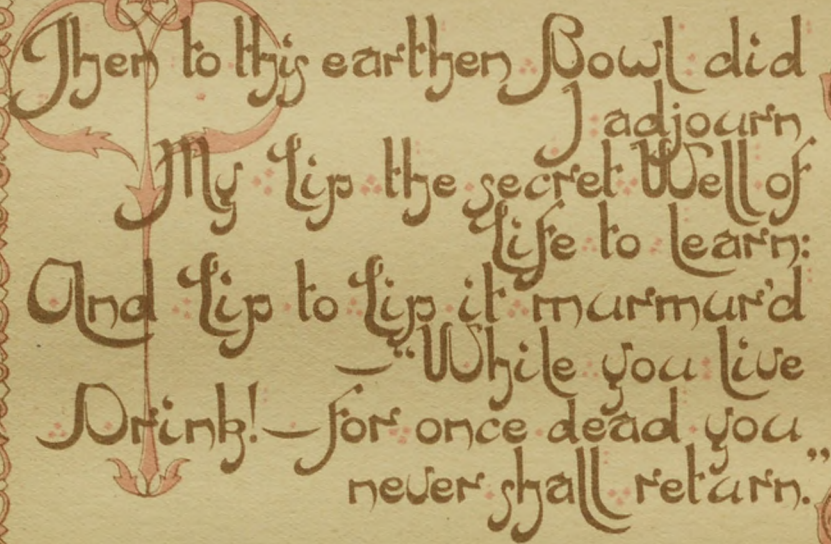 Then to this earthen Bowl did
I adjourn
My Lip the secret Well of
Life to learn:
And Lip to Lip it murmur'd
—“While you live
Drink!—for once dead you
never shall return.”